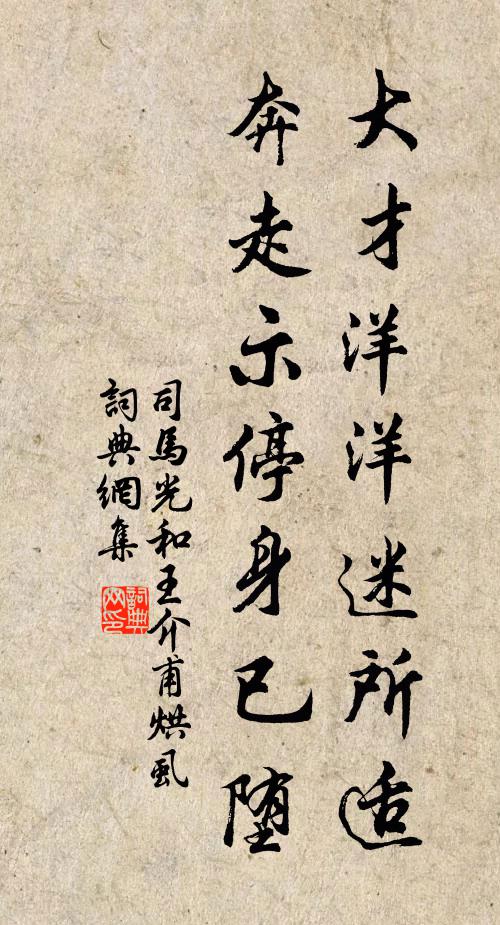 大才洋洋迷所适
奔走示停身已堕
司馬光和王介甫烘虱
詞典網集
詞典
网印